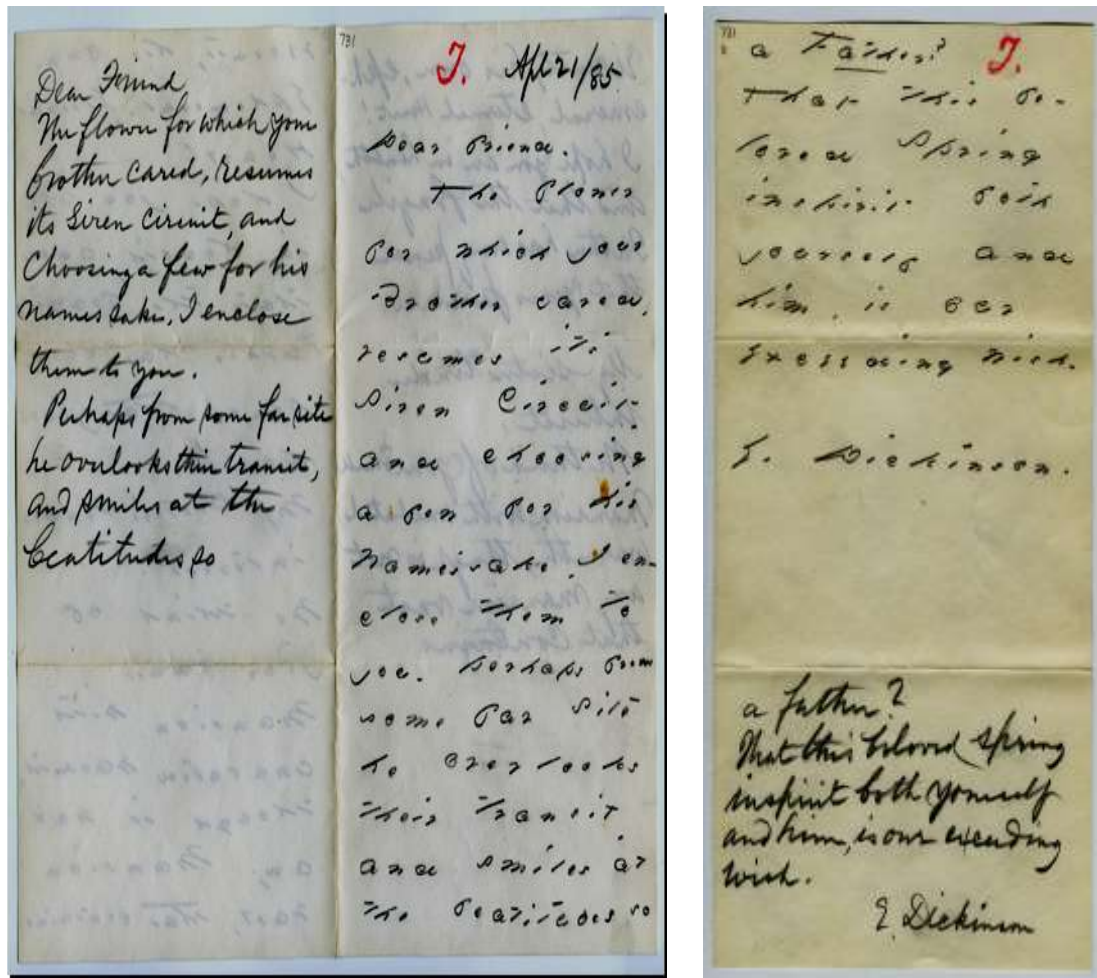 Dear Friend,
The flower for which your
brother cared, resumes
its Siren Circuit, and
Choosing a few for his
names sake, I enclose
them to you.
Perhaps from some far site
he overlooks their transit,
and smiles at the
beatitudes so
731
T. Apl 21/85
Dear Friend.
The Flower
for which your
Brother cared,
resumes its
Siren Circuit
and choosing
a few for his
Namesake, I en-
close them to
you. Perhaps from
some far site
he overlooks
their Transit,
and smiles at
the beatitudes so
731
a Father? T.
That this be-
loved Spring
inspirit both
yourself and
him, is our
Exceeding wish.
E. Dickinson.
a father?
That this beloved Spring
inspirit both yourself
and him, is our exceeding
wish.
E. Dickinson